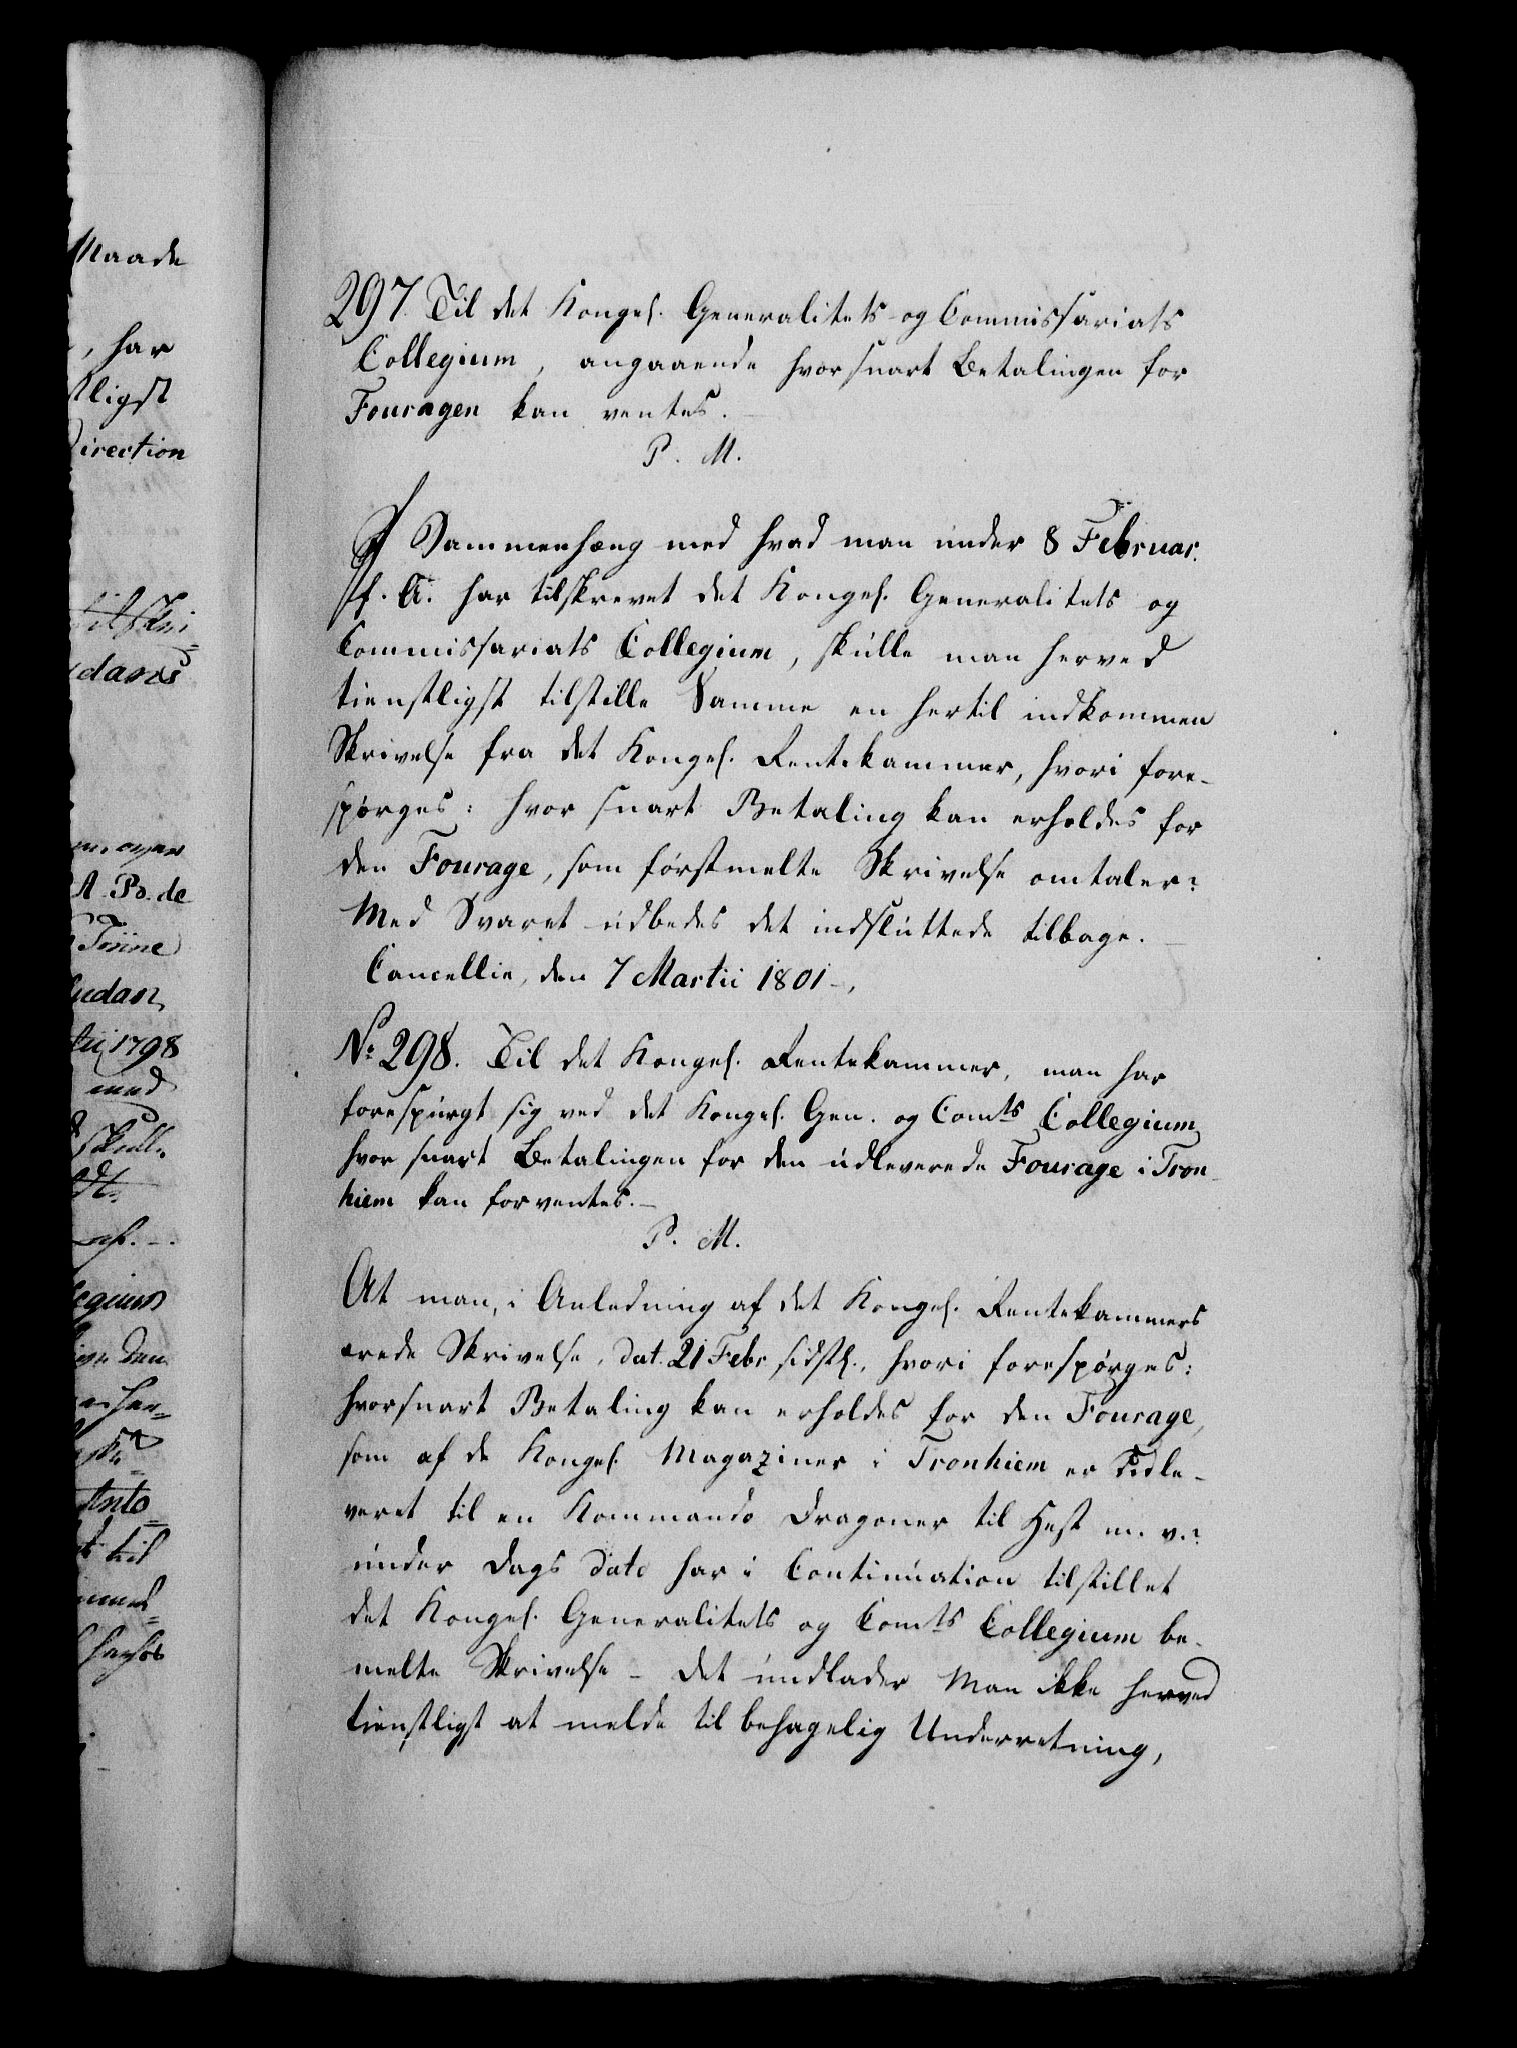 Maade
, har
tligst
Direction
dans
A. Po. de
Tönne
tii 1798
med
skull
legium
den
Anto
til
297. Til det Kongel. Generalitets- og Commissariats
Collegium, angaaende hvorsnart Betalingen for
Fouragen kan ventes. —
P. M.
I Sammenhæng med hvad man under 8 Februar.
f. A. har tilskrevet det Kongel. Generalitets og
Commissariats Collegium, skulle man herved
tienstligst tilstille Samme en hertil indkommen
Skrivelse fra det Kongel. Rentekammer, hvori fore-
spørges: hvor snart Betaling kan erholdes for
den Fourage, som førstmelte Skrivelse omtaler?
Med Svaret udbedes det indsluttede tilbage. —
Cancellie, den 7 Martii 1801 -,
No 298. Til det Kongel. Rentekammer, man har
forespurgt sig ved det Kongel. Gen. og Comts Collegium
hvor snart Betalingen for den udleverede Fourage i Tron-
hiem kan forventes. —
P. M.
At man, i Anledning af det Kongel. Rentekammers
ærede Skrivelse, dat. 21 Febr sidstl., hvori forespørges:
hvorsnart Betaling kan erholdes for den Fourage,
som af de Kongel. Magaziner i Tronhiem er udle-
veret til en Kommando Dragoner til Hest m. v.?
under Dags dato har i Continuation tilstillet
det Kongel. Generalitets og Comts Collegium be-
melte Skrivelse - det undlader Man ikke herved
tienstligt at melde til behagelig Underretning,